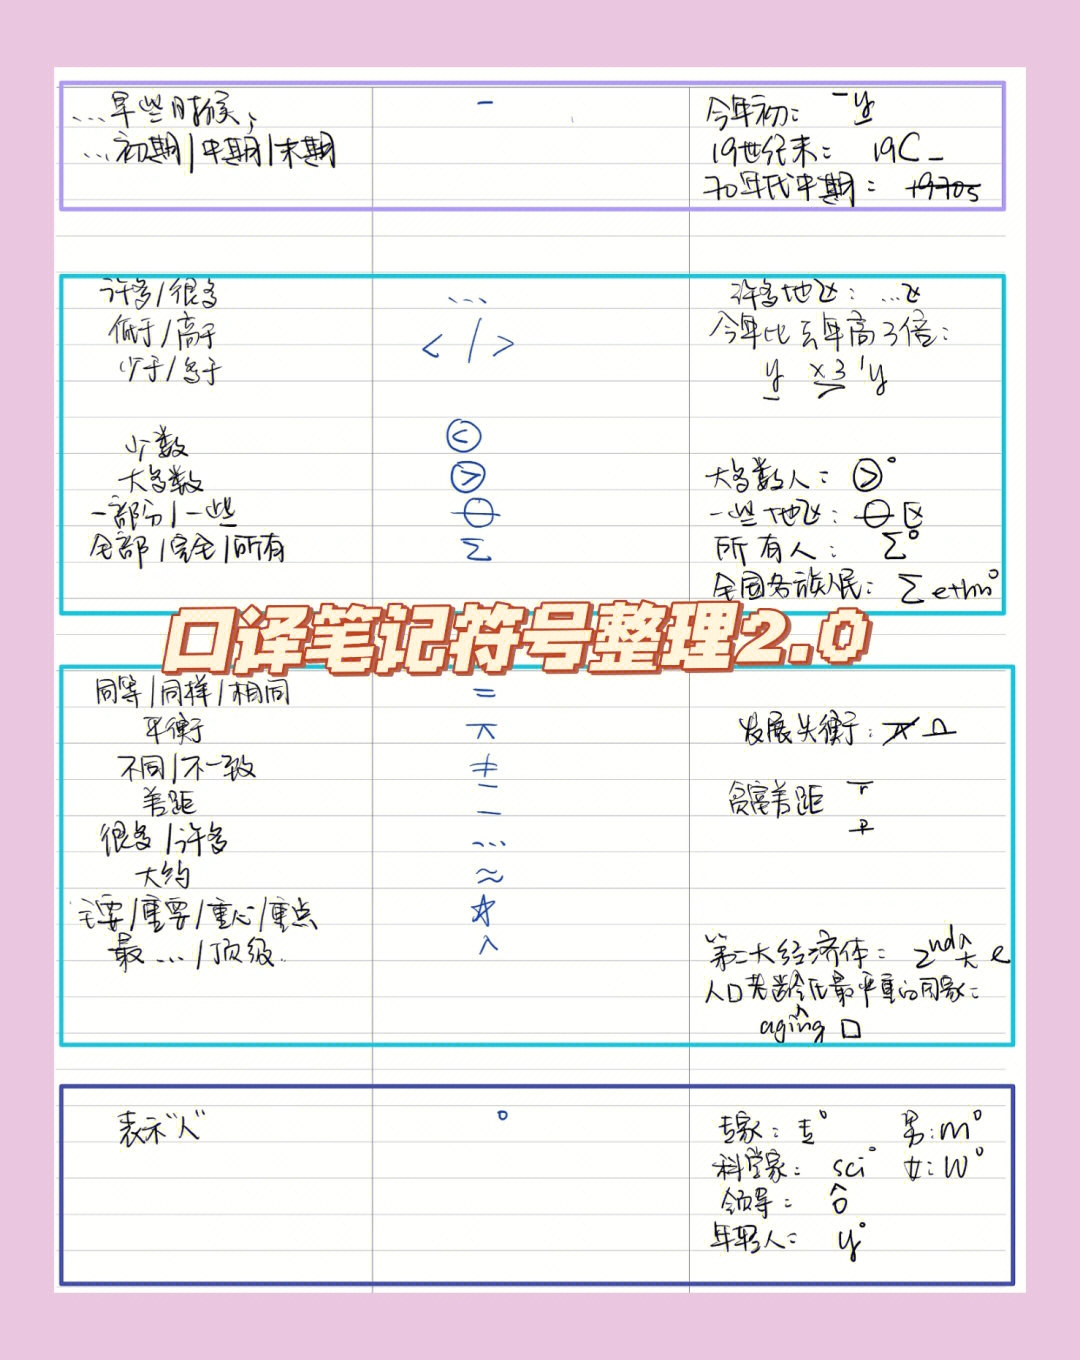 ...早些时候, - 今年初: -y
...初期/中期/末期 19世纪末: 19C_
70年代中期: 1970s
许多/很多 ... 许多地区: ...区
低于/高于 < / > 今年比去年高3倍:
少于/多于 y x3 'y
少数 <
大多数 > 大多数人: >°
一部分/一些 一些地区: 区
全部/完全/所有 Σ 所有人: Σ°
全国各族人民: Σ ethn°
口译笔记符号整理2.0
同等/同样/相同 =
平衡 发展失衡:
不同/不一致 ≠
差距 — 贫富差距 r
P
很多/许多 ...
大约 ≈
主要/重要/重心/重点 ☆
最.../顶级. ^ 第二大经济体: 2nd^大 e
人口老龄化最严重的国家:
aging^ □
表示"人" ° 专家: 专° 男: m°
科学家: sci° 女: W°
领导: ô
年轻人: y°